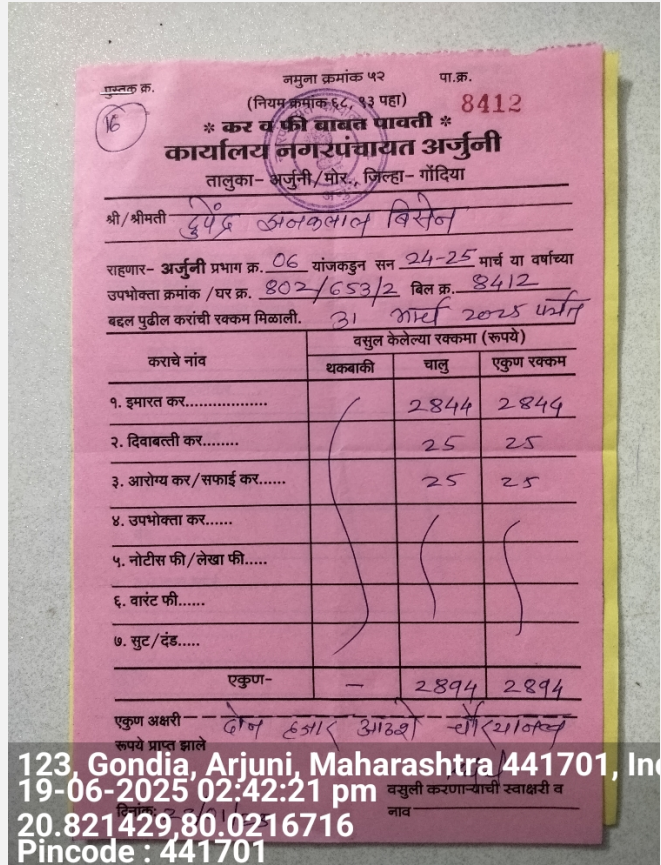 पुस्तक क्र.
नमुना क्रमांक ५२
पा.क्र.
16
(नियम क्रमांक ६८, ९३ पहा)
8412
* कर व फी बाबत पावती *
कार्यालय नगरपंचायत अर्जुनी
तालुका- अर्जुनी/मोर., जिल्हा- गोंदिया
श्री/श्रीमती बिसेन
राहणार- अर्जुनी प्रभाग क्र. 06 यांजकडुन सन 24-25 मार्च या वर्षाच्या
उपभोक्ता क्रमांक /घर क्र. 802/653/2 बिल क्र. 8412
बद्दल पुढील करांची रक्कम मिळाली. 31 मार्च 2025 पर्यंत
कराचे नांव वसुल केलेल्या रक्कमा (रूपये)
थकबाकी चालु एकुण रक्कम
१. इमारत कर................... 2844 2844
२. दिवाबत्ती कर........ 25 25
३. आरोग्य कर/सफाई कर...... 25 25
४. उपभोक्ता कर......
५. नोटीस फी/लेखा फी.....
६. वारंट फी......
७. सुट/दंड.....
एकुण- — 2894 2894
एकुण अक्षरी दोन हजार आठशे
रूपये प्राप्त झाले
वसुली करणाऱ्याची स्वाक्षरी व
नाव
दिनांक
123, Gondia, Arjuni, Maharashtra 441701, Ind
19-06-2025 02:42:21 pm
20.821429,80.0216716
Pincode : 441701